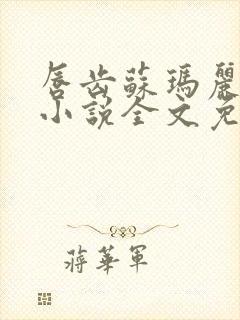 唇齿蘇瑪麗
小說全文免
蔣華軍